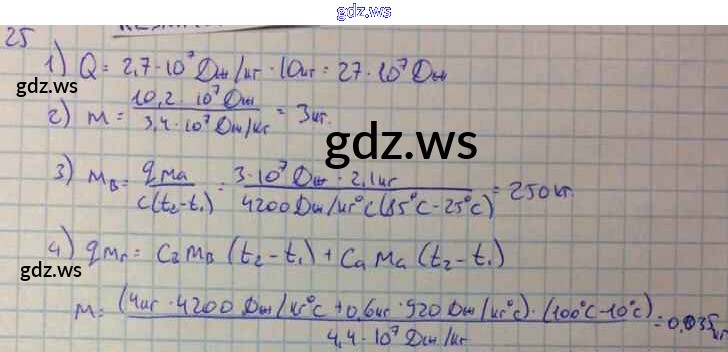 gdz.ws
25
1) Q = 2,7·10⁷ Дж/кг · 10кг = 27·10⁷ Дж
gdz.ws
2) m = 10,2·10⁷ Дж / 3,4·10⁷ Дж/кг = 3кг.
gdz.ws
3) mв = qma / c(t₂-t₁) = 3·10⁷ Дж · 2,1кг / 4200 Дж/кг°C (85°C-25°C) = 250кг.
4) qmг = C₂mв (t₂-t₁) + Cama (t₂-t₁)
gdz.ws
gdz.ws
m = (4кг · 4200 Дж/кг°C + 0,6кг · 920 Дж/кг°C) · (100°C-10°C) / 4,4·10⁷ Дж/кг = 0,035кг